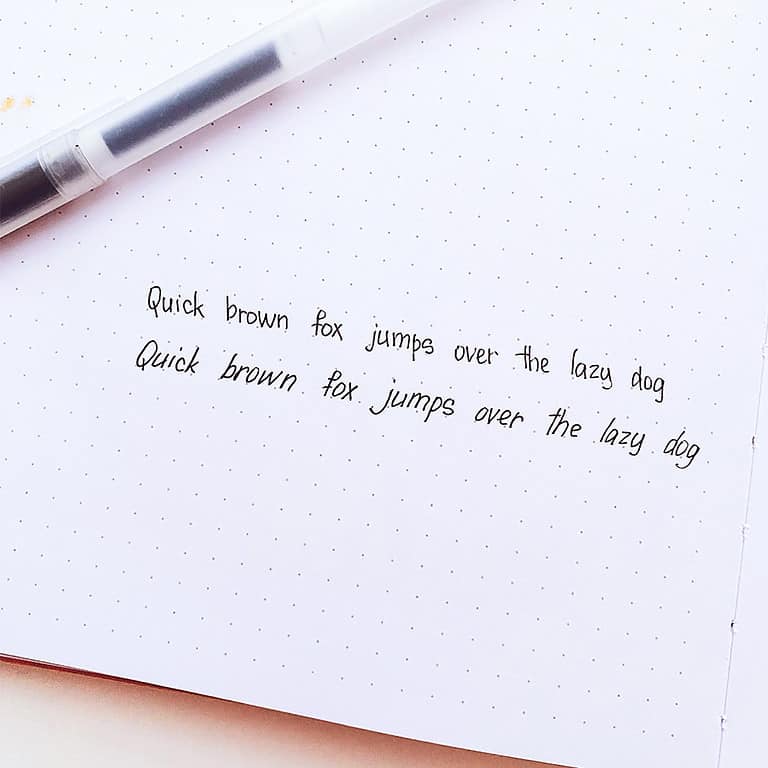 Quick brown fox jumps over the lazy dog
Quick brown fox jumps over the lazy dog